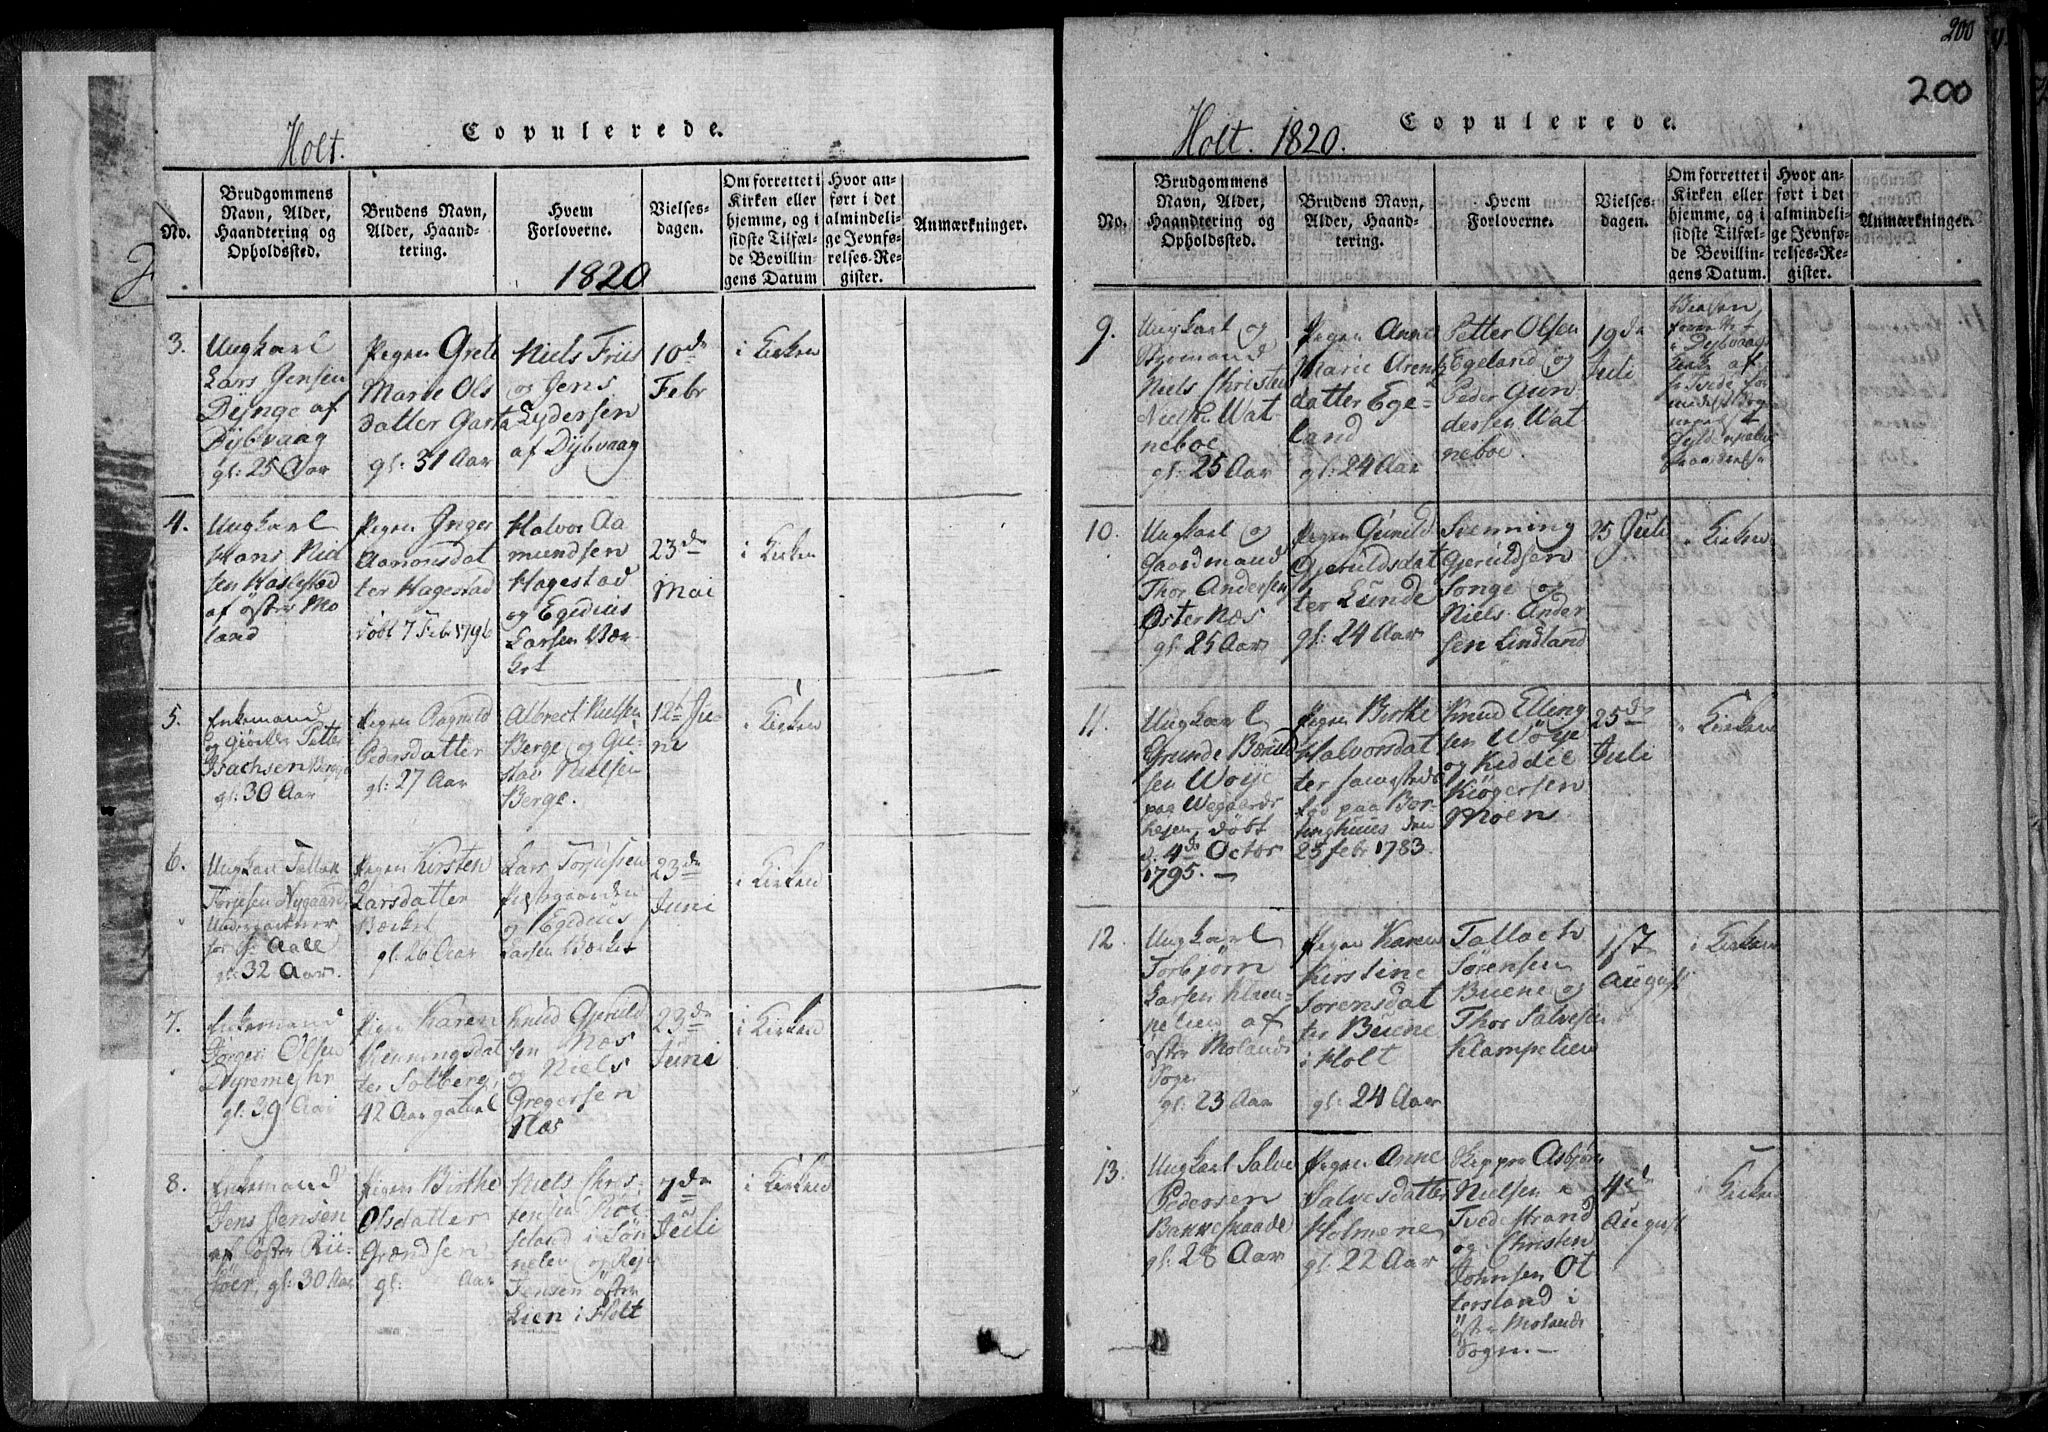 Holt.
Copulerede.
No.
Brudgommens
Navn, Alder,
Haandtering og
Opholdssted.
Brudens Navn,
Alder, Haand-
tering.
Hvem
Forloverne.
1820
Vielses-
dagen.
Om forrettet i
Kirken eller
hjemme, og i
sidste Tilfæl-
de Bevillin-
gens Datum
Hvor an-
ført i det
almindeli-
ge Jevnfø-
relses-Re-
gister.
Anmærkninger.
3.
Ungkarl
Lars Jensen
Dynge af
Dybvaag
gl: 25 Aar
Pigen Grete
Marie Ols
datter Garta
gl: 31 Aar
Niels Friis
og Jens
Lydersen
af Dybvaag
10de
Febr
i Kirken
4.
Ungkarl
Hans Niel
sen Haslestad
af østre Mo
land
Pigen Inger
Aamonsdat
ter Hagestad
døbt 7 Febr 1796
Halvor Aa
mundsen
Hagestad
og Egidius
Larsen Vær
ket
23de
Mai
i Kirken
5.
Enkemand
og Giørtler Petter
Isachsen Berge
gl: 30 Aar
Pigen Ragnild
Pedersdatter
gl: 27 Aar
Albrect Nielsen
Berge og Gu-
stav Nielsen
Berge.
12t Ju-
ni
i Kirken
6.
Ungkarl Tallak
Torjesen Nygaard
for Hr Aall
gl: 32 Aar.
Pigen Kirsten
Larsdatter
Værket
gl: 26 Aar
Lars Torjussen
Præstgaarden
og Egidius
Larsen Værket
23de
Juni
i Kirken
7.
Enkemand
Jørgen Olsen
Dyremyhr
gl: 39 Aar
Pigen Karen
Henningsdat
ter Solberg,
42 Aar gamel
Knud Gjeruld
sen Næs
og Niels
Gregersen
Næs
23de
Juni
i Kirken
8.
Enkemand
Jens Jensen
af østre Rii-
søer, gl: 30 Aar
Pigen Birthe
Olsdatter
Grændsen
gl: Aar
Niels Chris
tensen Røi
seland i Søn
deløv og
Jensen østre
Lien i Holt
7de
Juli
i Kirken
200
200
Holt. 1820.
Copulerede.
No.
Brudgommens
Navn, Alder,
Haandtering og
Opholdssted.
Brudens Navn,
Alder, Haand-
tering.
Hvem
Forloverne.
Vielses-
dagen.
Om forrettet i
Kirken eller
hjemme, og i
sidste Tilfæl-
de Bevillin-
gens Datum.
Hvor an-
ført i det
almindeli-
ge Jevnfø-
relses-Re-
gister.
Anmærkninger.
9.
Ungkarl og
Niels Christen
Nielsen Wat
neboe
gl: 25 Aar
Pigen Anne
Marie Arends
datter Ege-
land
gl: 24 Aar
Petter Olsen
Egeland og
Peder Gun
dersen Wat
neboe.
19de
Juli
i Dybvaags
Kirke af
10.
Ungkarl og
Gaardmand
Thor Andersen
Øster Næs
gl: 25 Aar
Pigen Gunild
Gjeruldsdat
ter Lunde
gl: 24 Aar
Svenning
Gjeruldsen
Songe og
Niels Ander
sen Lindland
25 Juli
i Kirken
11.
Ungkarl
Grunde Bærul
sen Woije
paa Wegaards
heien, døbt
d. 4de Octor
1795.
Pigen Birthe
Halvorsdat
ter sammesteds
fød paa Bor-
tinghuus den
23 febr 1783.
Knud Elling
sen Wöije
og Kiddel
Kiøgersen
Moen
25de
Juli
i Kirken
12.
Ungkarl
Torbjørn
Larsen Klam-
pelien af
østre Molands
Sogn
gl: 23 Aar
Pigen Karen
Kirstine
Sørensdat
ter Buene
i Holt
gl: 24 Aar
Tallach
Sørensen
Buene og
Thor Salvesen
Klampelien
1st
August
i Kirken
13.
Ungkarl Salve
Pedersen
Bakkeskaade
gl: 28 Aar
Pigen Anne
Salvesdatter
Holmene
gl: 22 Aar
Skipper Asbjørn
Nielsen i
Tvedestrand
og Christen
Johnsen Ot
tersland i
østre Molands
Sogn.
4de
August
i Kirken